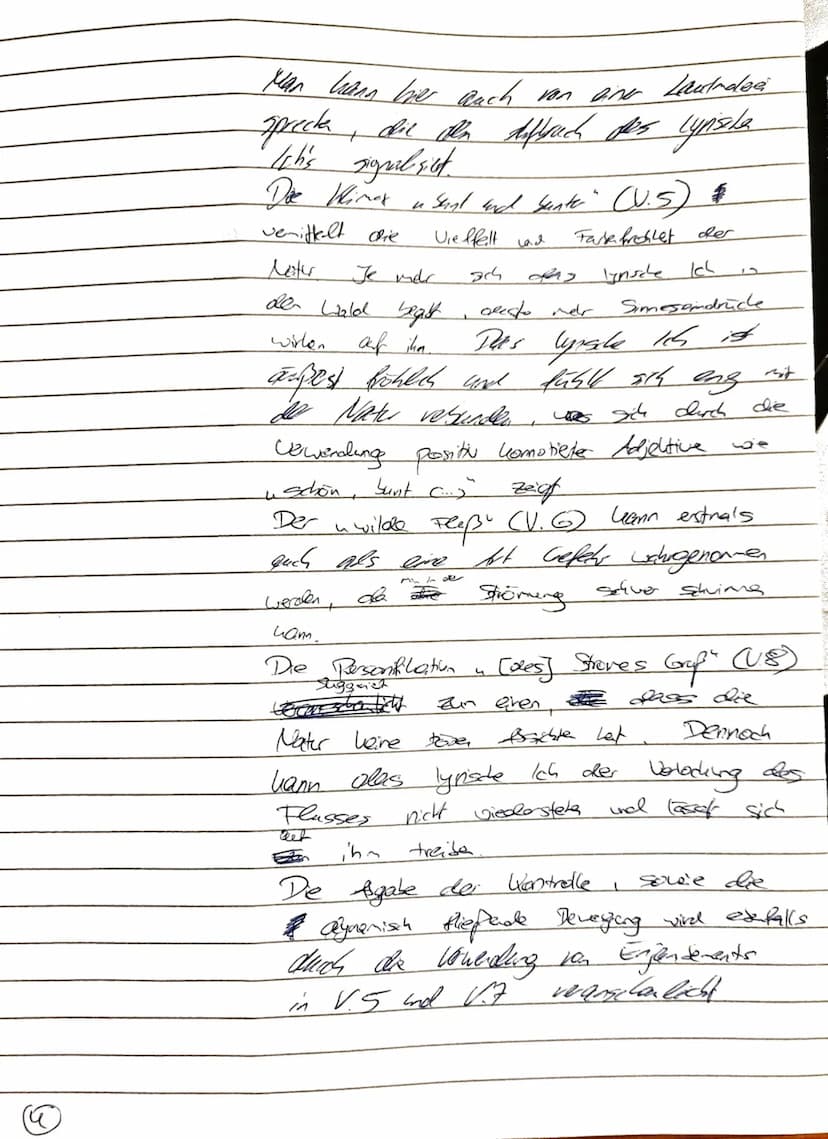 Man kann hier auch von einer Lautmalerei
sprechen, die den Aufbruch des lyrische
Ich's signalisiert.
Die Klimax „bunt und bunter" (V.5)
vermittelt die Vielfalt und Farbenfrohheit der
Natur. Je mehr sich das lyrische Ich in
den Wald begibt, desto mehr Sinneseindrücke
wirken auf ihn. Das lyrische Ich ist
äußerst fröhlich und fühlt sich eng mit
der Natur verbunden, was sich durch die
Verwendung positiv konnotierter Adjektive wie
„schön, bunt (...)" zeigt
Der „wilde Fluß" (V.6) kann erstmals
auch als eine Art Gefahr wahrgenommen
werden, da man in der Strömung schwer schwimmen
kann.
Die Personifikation „[des] Stromes Gruß" (V.8)
suggeriert zum einen, dass die
Natur keine bösen Absichten hat. Dennoch
kann das lyrische Ich der Verlockung des
Flusses nicht wiederstehen und lässt sich
auf ihm treiben.
Die Abgabe der Kontrolle, sowie die
dynamisch fließende Bewegung wird ebenfalls
durch die Verwendung von Enjambements
in V.5 und V.7 veranschaulicht
4